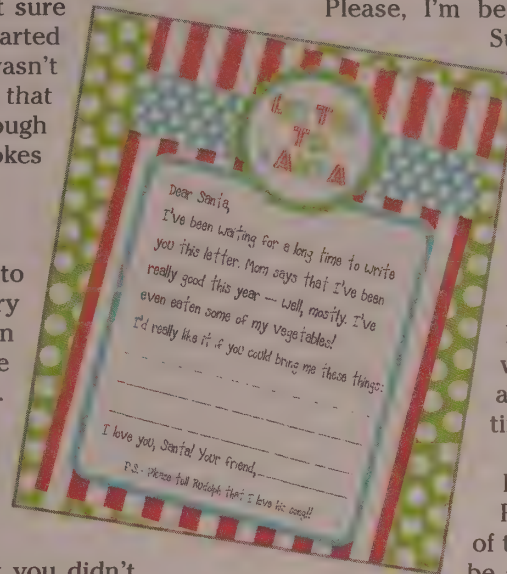 t sure
arted
wasn't
that
ough
okes
to
ry
n
e
.
Please, I'm be
Su
L T
T
A A
Dear Santa,
I've been waiting for a long time to write
you this letter. Mom says that I've been
really good this year — well, mostly. I've
even eaten some of my vegetables!
I'd really like it if you could bring me these things:
I love you, Santa! Your friend,
P.S. - Please tell Rudolph that I love his song!!
v
a
ti
of t
be
you didn't